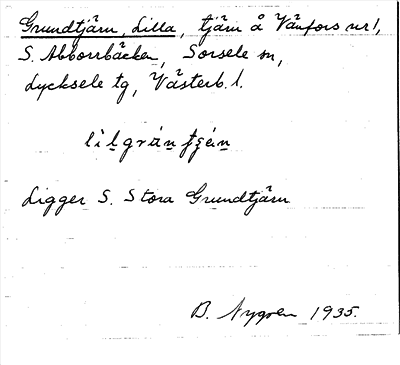 Grundtjärn, Lilla, tjärn å Vänfors nr 1,
S. Abborrbäcken, Sorsele sn,
Lycksele tg, Västerb. l.
Ligger S. Stora Grundtjärn
B. Nygren 1935.